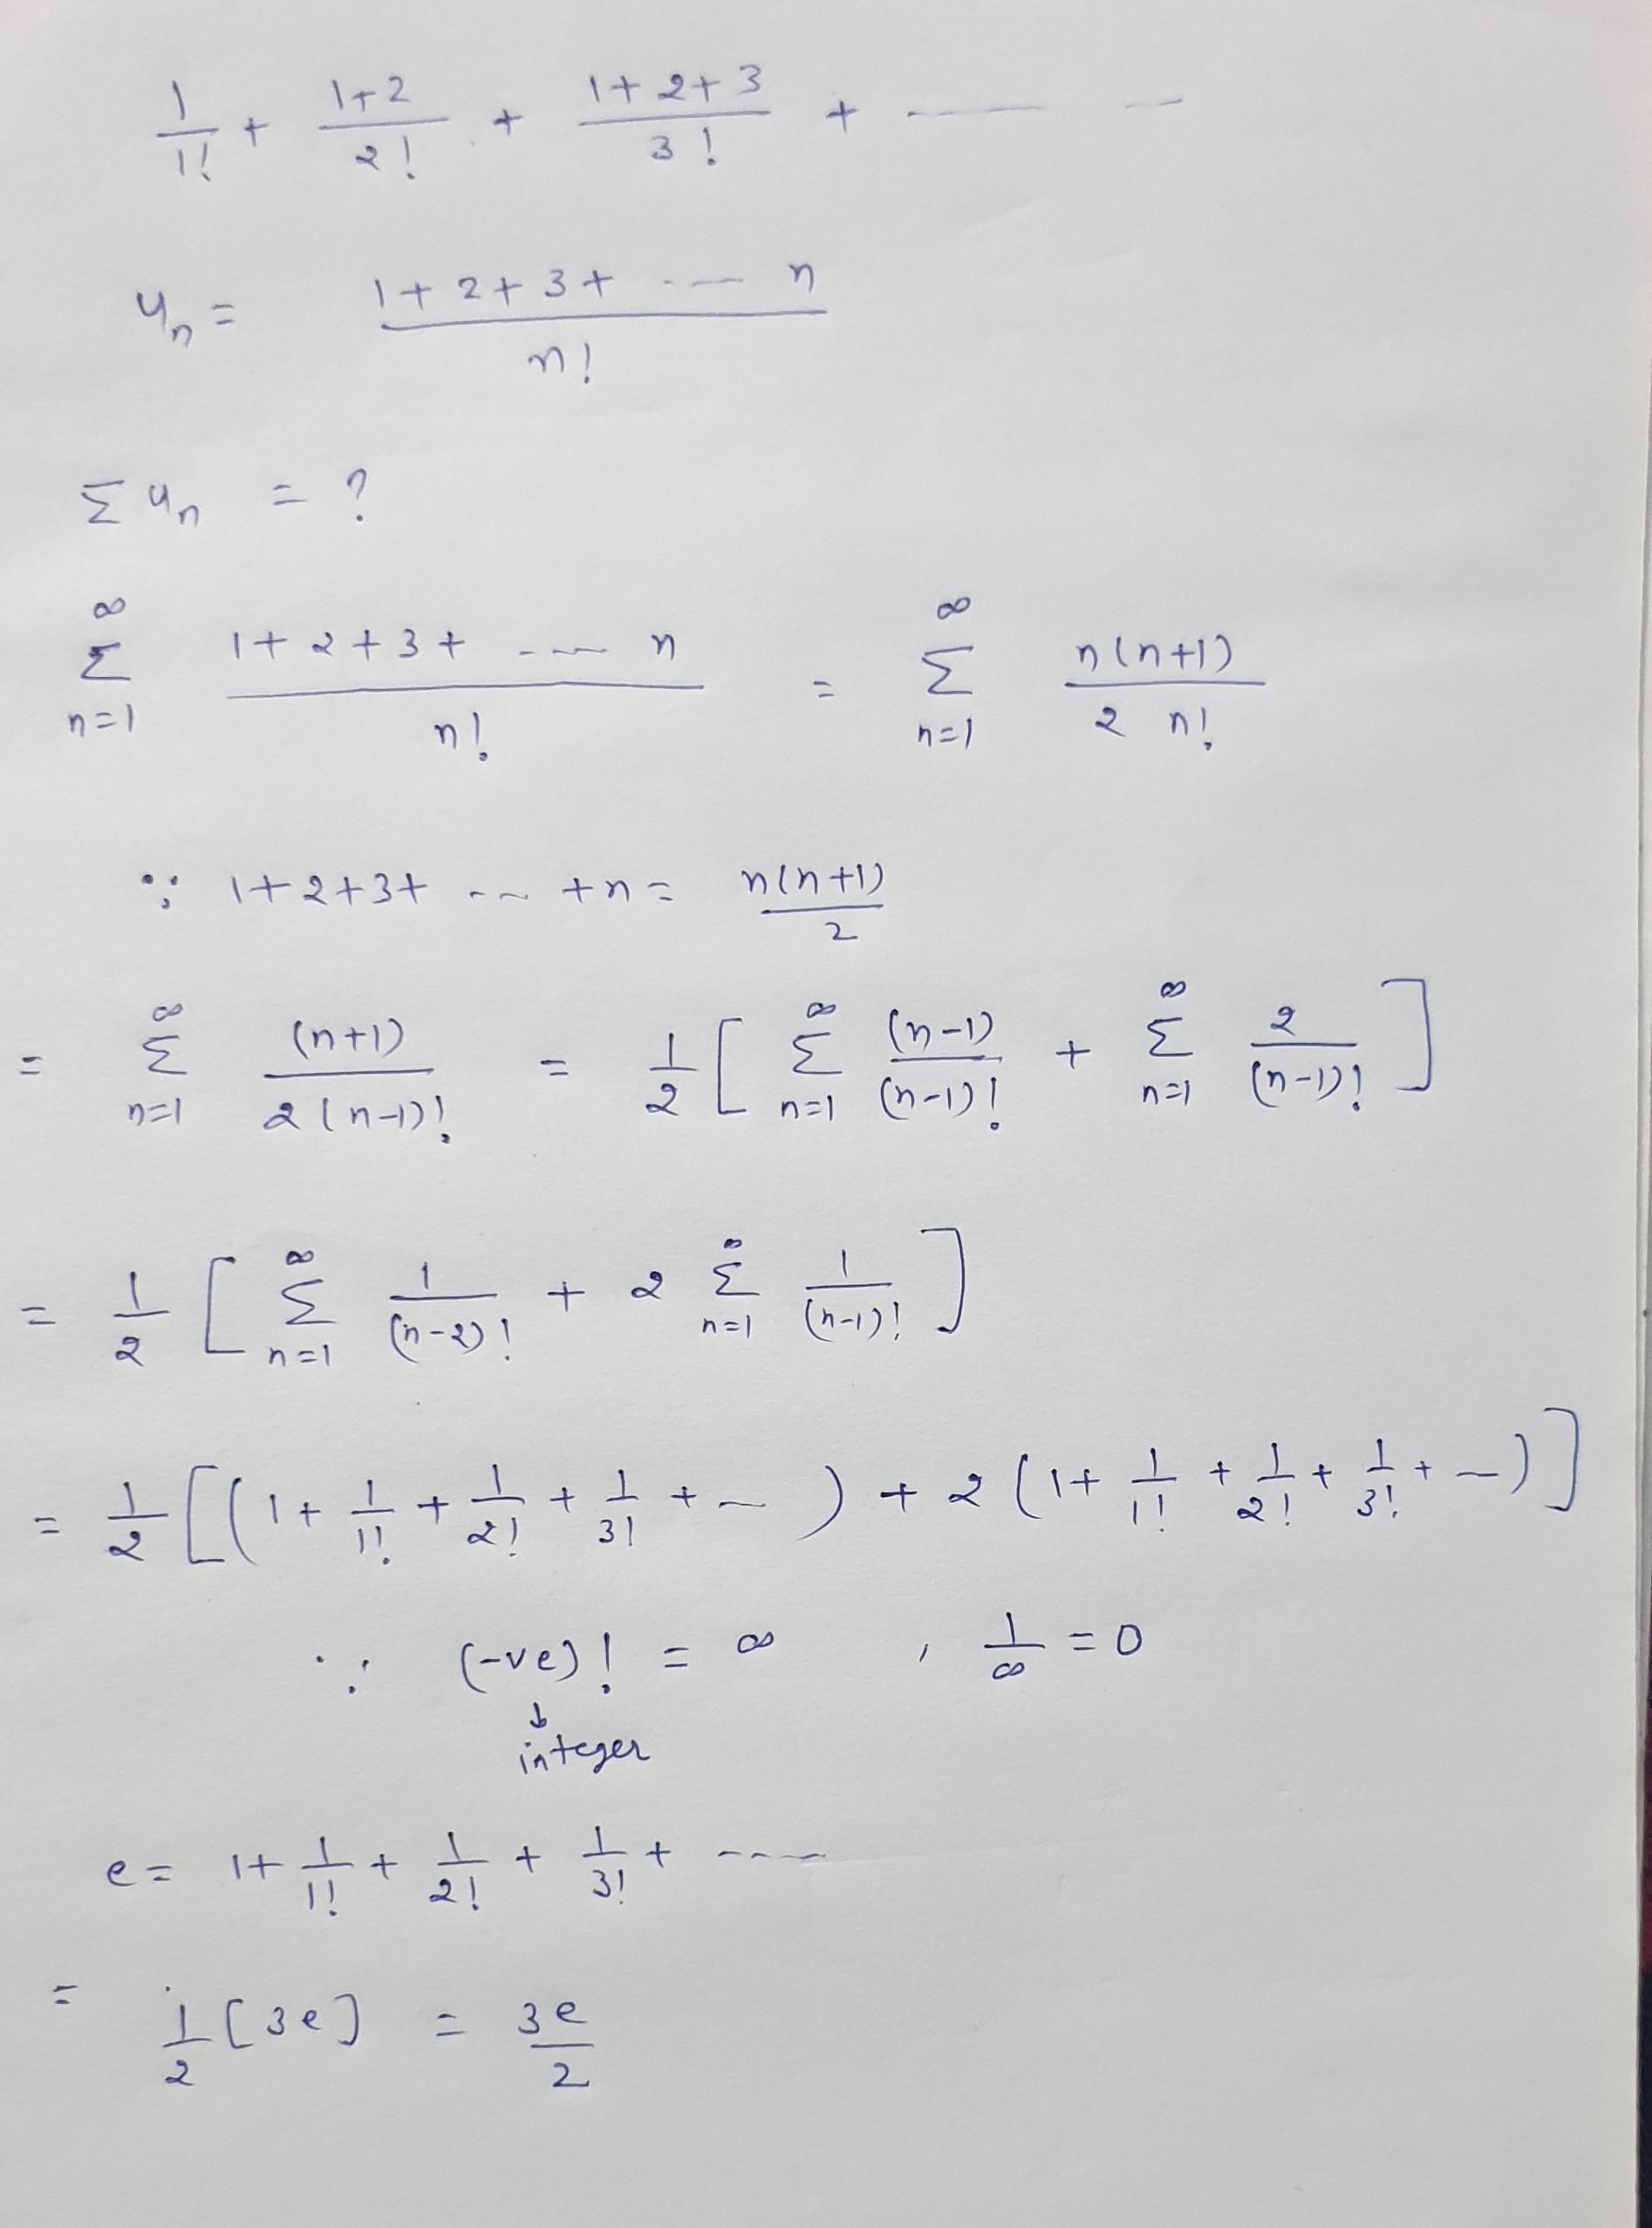 1/1! + (1+2)/2! + (1+2+3)/3! + —— —
u_n = (1+2+3+ ---- n)/n!
Σ u_n = ?
∞Σn=1 (1+2+3+ ---- n)/n! = ∞Σn=1 n(n+1)/(2 n!)
∵ 1+2+3+ --- +n = n(n+1)/2
= ∞Σn=1 (n+1)/(2(n-1)!) = 1/2 [ ∞Σn=1 (n-1)/(n-1)! + ∞Σn=1 2/(n-1)! ]
= 1/2 [ ∞Σn=1 1/(n-2)! + 2 ∞Σn=1 1/(n-1)! ]
= 1/2 [ ( 1 + 1/1! + 1/2! + 1/3! + --- ) + 2 ( 1 + 1/1! + 1/2! + 1/3! + --- ) ]
∵ (-ve)! = ∞ , 1/∞ = 0
↓
integer
e = 1 + 1/1! + 1/2! + 1/3! + ----
= 1/2 [3e] = 3e/2